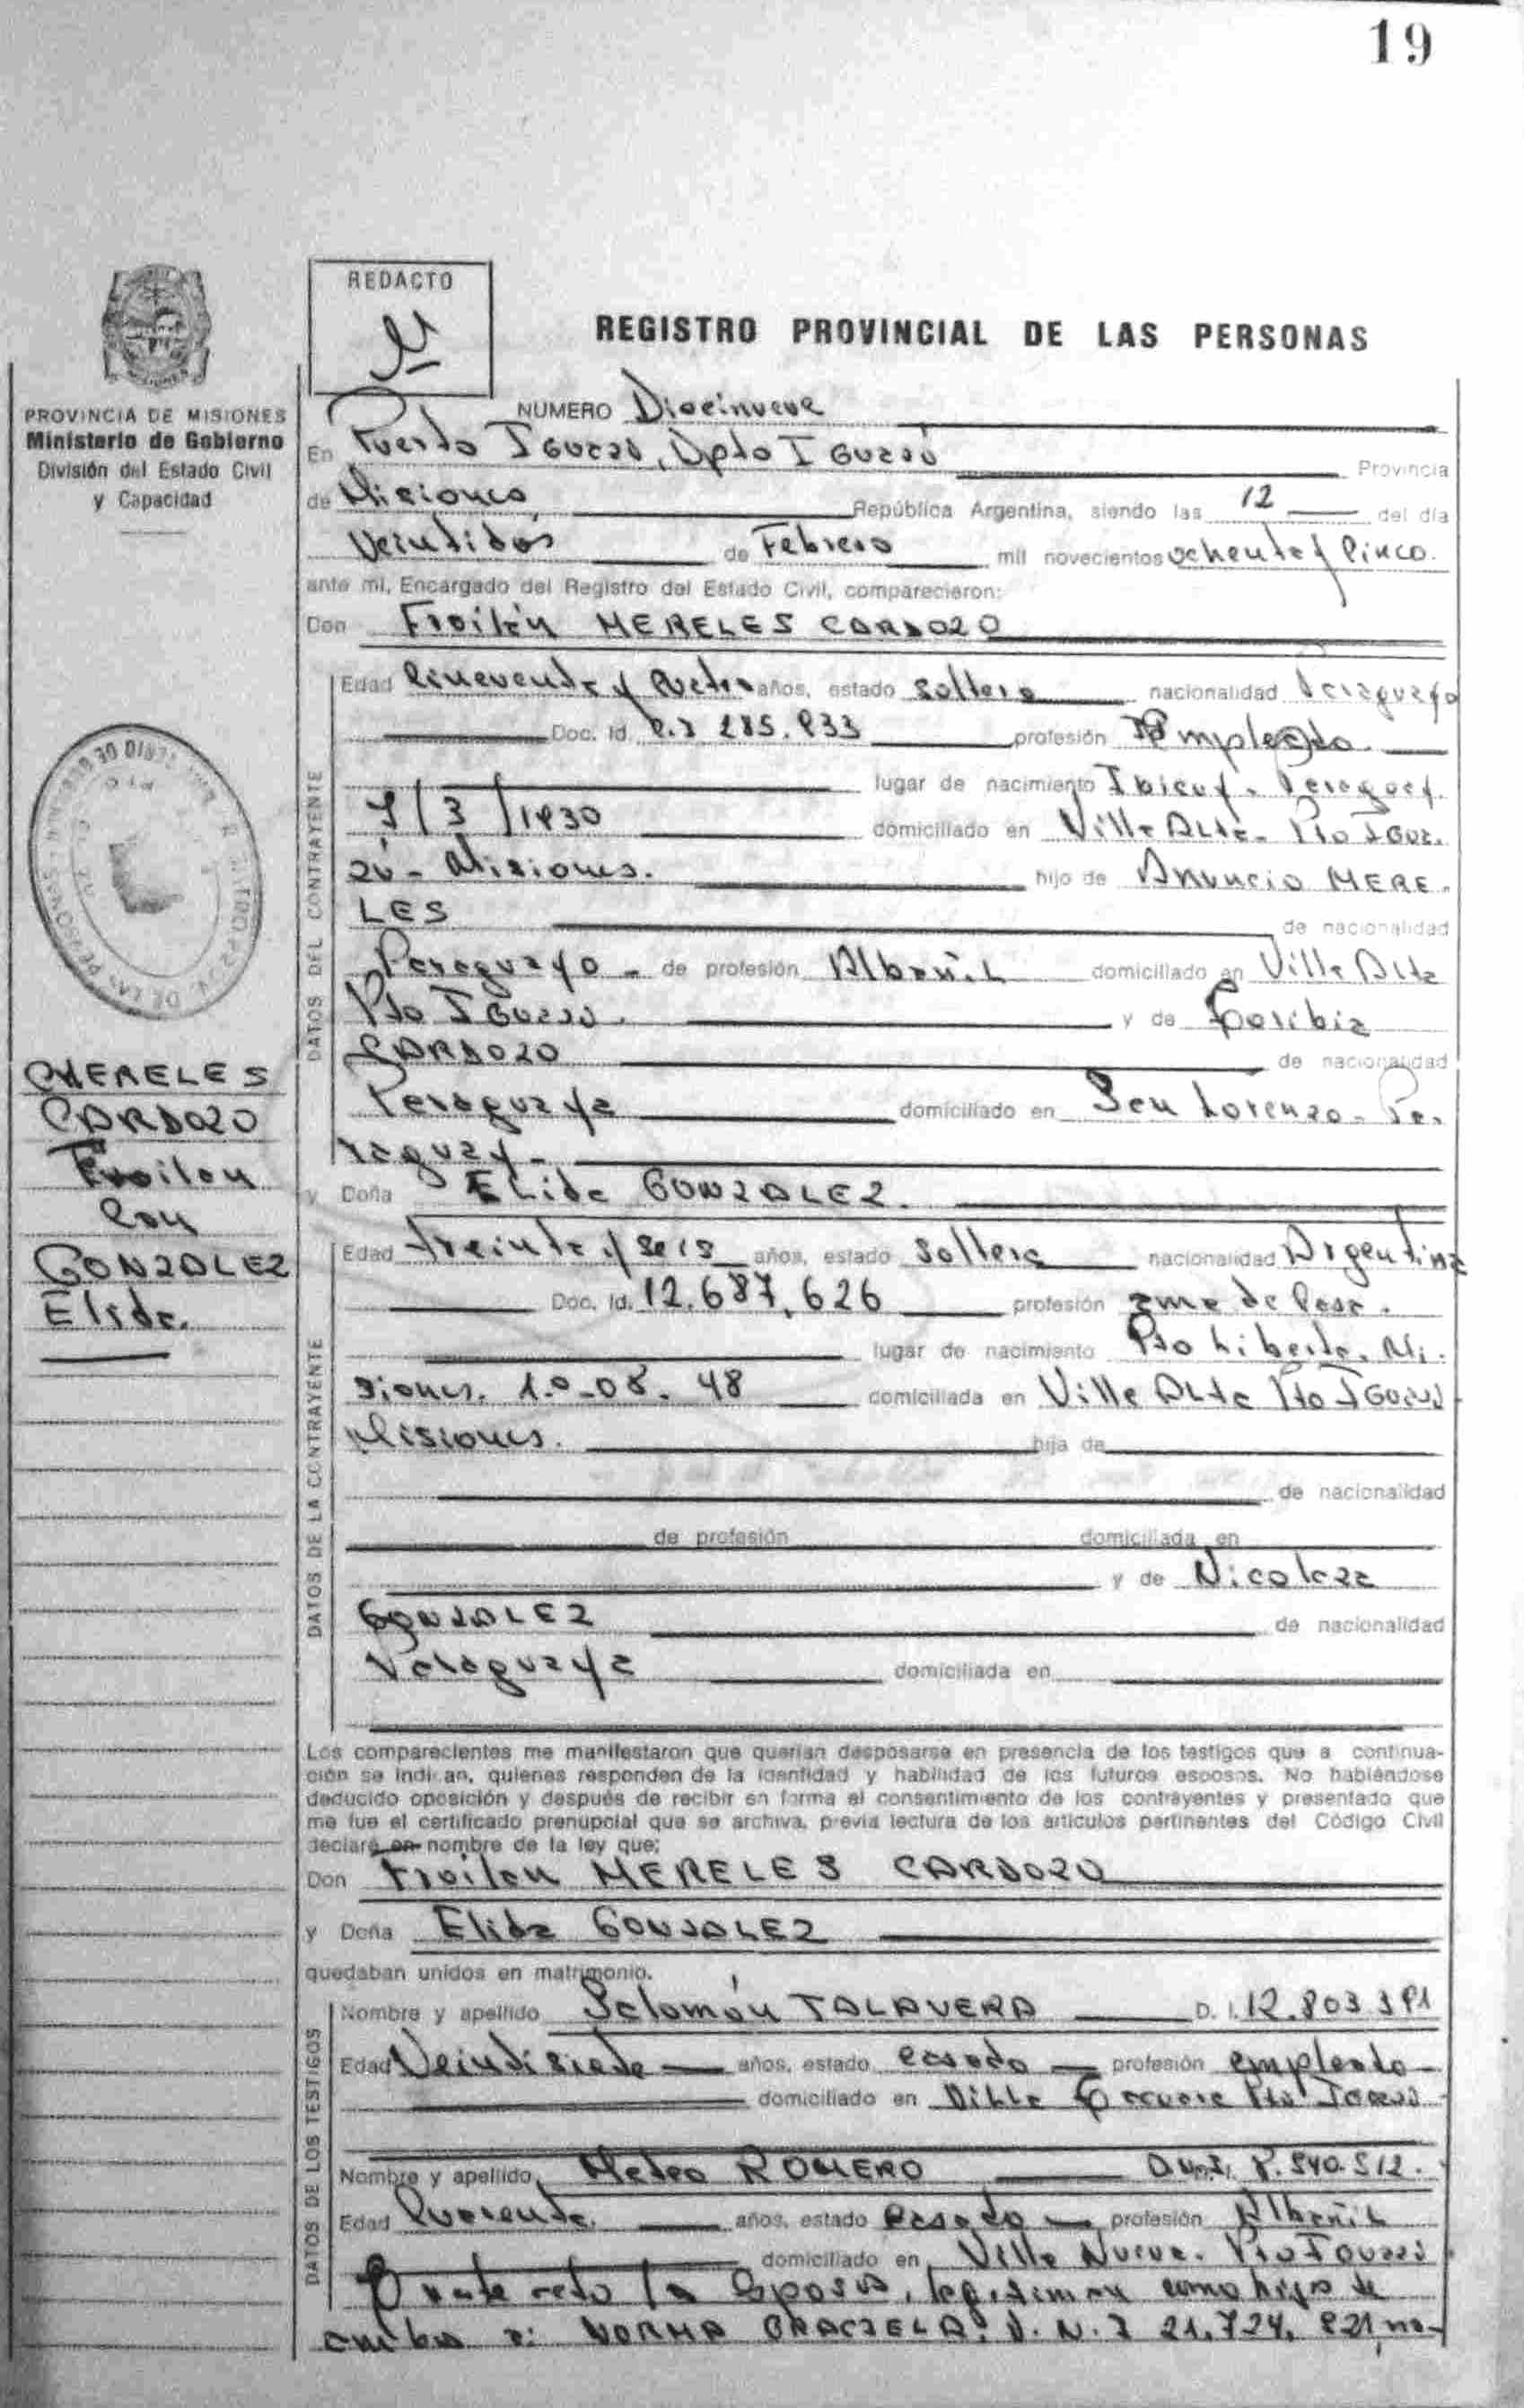 19
REDACTO
REGISTRO PROVINCIAL DE LAS PERSONAS
PROVINCIA DE MISIONES
Ministerio de Gobierno
División del Estado Civil
y Capacidad
NUMERO Diecinueve
En Puerto IGuazú, Dpto IGuazú Provincia
de Misiones República Argentina, siendo las 12 del día
Veintidós de Febrero mil novecientos ochenta y Cinco.
ante mi, Encargado del Registro del Estado Civil, comparecieron:
Don Froilán MERELES CARDOZO
DATOS DEL CONTRAYENTE
Edad Cincuenta y Cuatro años, estado soltero nacionalidad Paraguayo
Doc. Id. C.I 285.933 profesión Empleado.
lugar de nacimiento Ibicuy. Paraguay.
7/3/1930 domiciliado en Villa Alta- Pto IGua.
zú - Misiones. hijo de Anuncio MERE.
LES de nacionalidad
Paraguayo - de profesión Albañil domiciliado en Villa Alta
Pto IGuazú. y de Toribia
CARDOZO de nacionalidad
Paraguaya domiciliado en San Lorenzo - Pa.
raguay -
MERELES
CARDOZO
Froilan
Con
GONZALEZ
Elida.
y Doña Elida GONZALEZ.
DATOS DE LA CONTRAYENTE
Edad treinta y seis años, estado soltera nacionalidad Argentina
Doc. Id. 12.687.626 profesión ama de Casa.
lugar de nacimiento Pto Libertad. Mi.
siones. 1.0-08. 48 domiciliada en Villa Alta Pto IGuazú
Misiones. hija de
de nacionalidad
de profesión domiciliada en
y de Nicolaza
GONZALEZ de nacionalidad
Paraguaya domiciliada en
Los comparecientes me manifestaron que querían desposarse en presencia de los testigos que a continua-
ción se indican, quienes responden de la identidad y habilidad de los futuros esposos. No habiéndose
deducido oposición y después de recibir en forma el consentimiento de los contrayentes y presentado que
me fue el certificado prenupcial que se archiva, previa lectura de los artículos pertinentes del Código Civil
declaré en nombre de la ley que:
Don Froilan MERELES CARDOZO
y Doña Elida GONZALEZ
quedaban unidos en matrimonio.
DATOS DE LOS TESTIGOS
Nombre y apellido Salomón TALAVERA D. I. 12.803.391
Edad Veintisiete años, estado casado profesión empleado
domiciliado en Villa Pto Iguazú
Nombre y apellido Mateo ROMERO D.N.I. 8.540.512.
Edad Cuarenta. años, estado Casado profesión Albañil
domiciliado en Villa Nueva. Pto Iguazú
En este acto los Esposos, legitiman como hijos de
ambos a: NORMA GRACIELA: D.N.I 21.724.821, na-